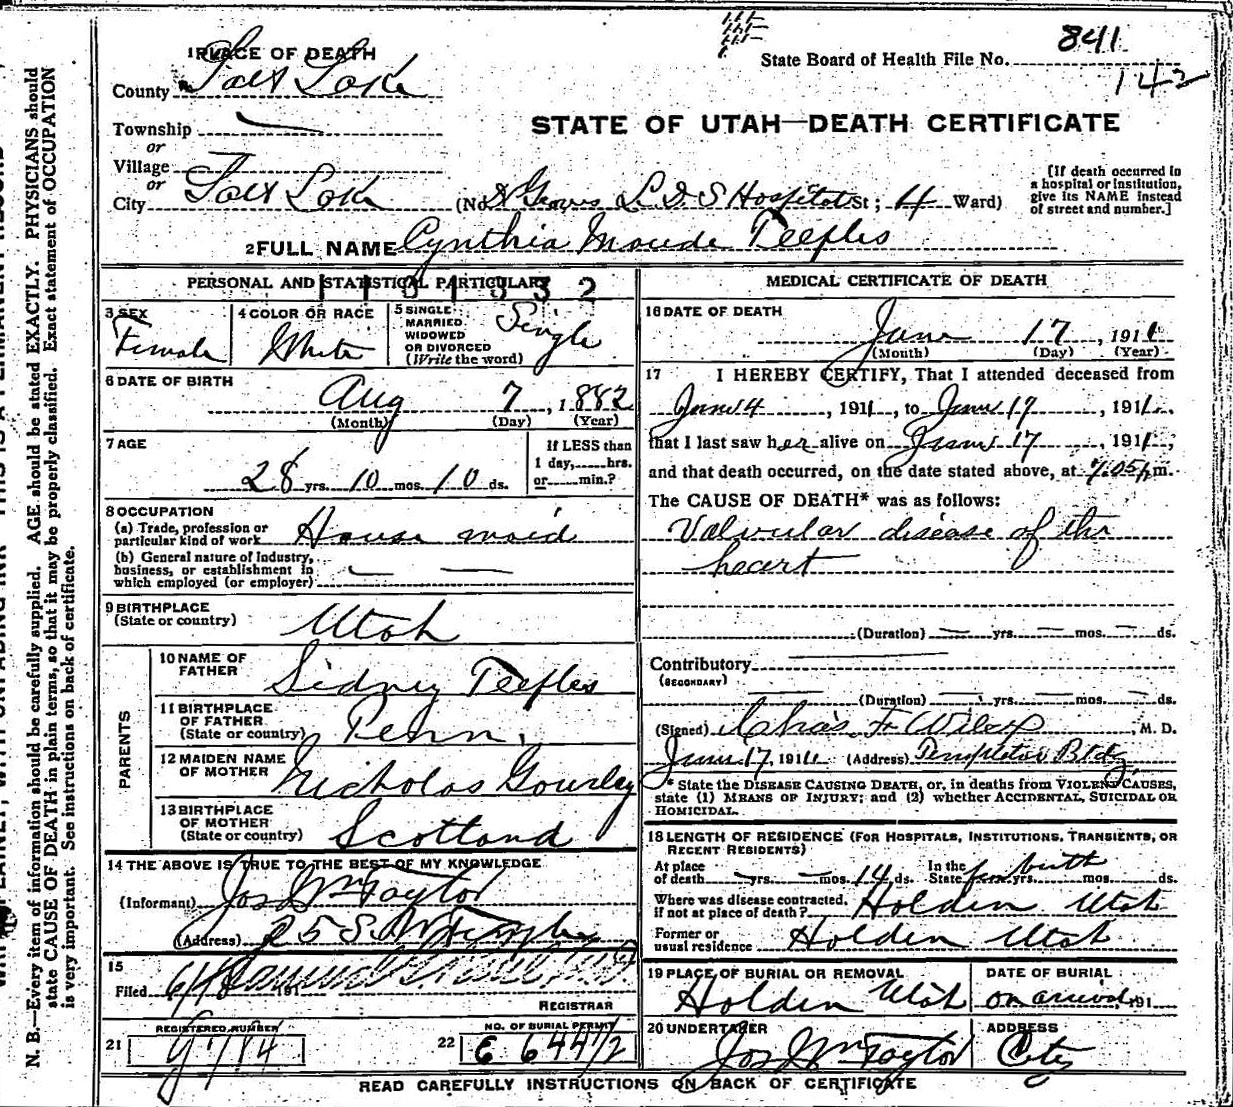 841
State Board of Health File No.
142
1 PLACE OF DEATH
County Salt Lake
Township
or
Village
or
City Salt Lake
STATE OF UTAH—DEATH CERTIFICATE
(No. Groves L.D.S Hospital St; 4 Ward)
[If death occurred in
a hospital or institution,
give its NAME instead
of street and number.]
2 FULL NAME Cynthia Maude Teeples
PERSONAL AND STATISTICAL PARTICULARS
3 SEX
Female
4 COLOR OR RACE
White
5 SINGLE
MARRIED
WIDOWED
OR DIVORCED
(Write the word)
Single
6 DATE OF BIRTH
Aug 7, 1882
(Month) (Day) (Year)
7 AGE
28 yrs. 10 mos. 10 ds.
If LESS than
1 day, hrs.
or min.?
8 OCCUPATION
(a) Trade, profession or
particular kind of work House maid
(b) General nature of Industry,
business, or establishment in
which employed (or employer)
9 BIRTHPLACE
(State or country) Utah
PARENTS
10 NAME OF
FATHER Sidney Teeples
11 BIRTHPLACE
OF FATHER
(State or country) Penn.
12 MAIDEN NAME
OF MOTHER Nicholas Gourley
13 BIRTHPLACE
OF MOTHER
(State or country) Scotland
14 THE ABOVE IS TRUE TO THE BEST OF MY KNOWLEDGE
(Informant) Jos Wm Taylor
(Address) 25 S. W Temple
15
Filed 191
REGISTRAR
REGISTERED NUMBER
21 9784
NO. OF BURIAL PERMIT
22 E 6447/2
MEDICAL CERTIFICATE OF DEATH
16 DATE OF DEATH
June 17, 1911
(Month) (Day) (Year)
17 I HEREBY CERTIFY, That I attended deceased from
June 4, 1911, to June 17, 1911.
that I last saw her alive on June 17, 1911,
and that death occurred, on the date stated above, at 7.05 p m.
The CAUSE OF DEATH* was as follows:
Valvular disease of the
heart
(Duration) yrs. mos. ds.
Contributory
(SECONDARY)
(Duration) yrs. mos. ds.
(Signed) Chas. F. Wilcox, M. D.
June 17, 1911 (Address) Templeton Bldg.
* State the DISEASE CAUSING DEATH, or, in deaths from VIOLENT CAUSES,
state (1) MEANS OF INJURY; and (2) whether ACCIDENTAL, SUICIDAL OR
HOMICIDAL.
18 LENGTH OF RESIDENCE (FOR HOSPITALS, INSTITUTIONS, TRANSIENTS, OR
RECENT RESIDENTS)
At place
of death yrs. mos. 14 ds. In the
State from birth yrs. mos. ds.
Where was disease contracted,
if not at place of death? Holden Utah
Former or
usual residence Holden Utah
19 PLACE OF BURIAL OR REMOVAL
Holden Utah
DATE OF BURIAL
on arrival, 191
20 UNDERTAKER
Jos Wm Taylor
ADDRESS
City
READ CAREFULLY INSTRUCTIONS ON BACK OF CERTIFICATE
N. B.—Every item of information should be carefully supplied. AGE should be stated EXACTLY. PHYSICIANS should
state CAUSE OF DEATH in plain terms, so that it may be properly classified. Exact statement of OCCUPATION
is very important. See instructions on back of certificate.